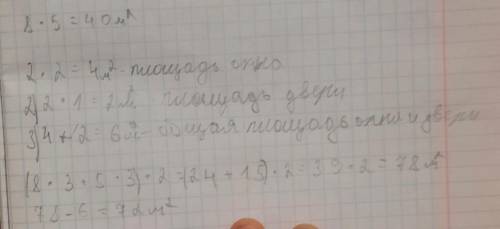 8 · 5 = 40 м²
2 · 2 = 4 м² - площадь окна
2) 2 · 1 = 2 м² площадь двери
3) 4 + 2 = 6 м² - общая площадь окна и двери
(8 · 3 + 5 · 3) · 2 = (24 + 15) · 2 = 39 · 2 = 78 м²
78 - 6 = 72 м²